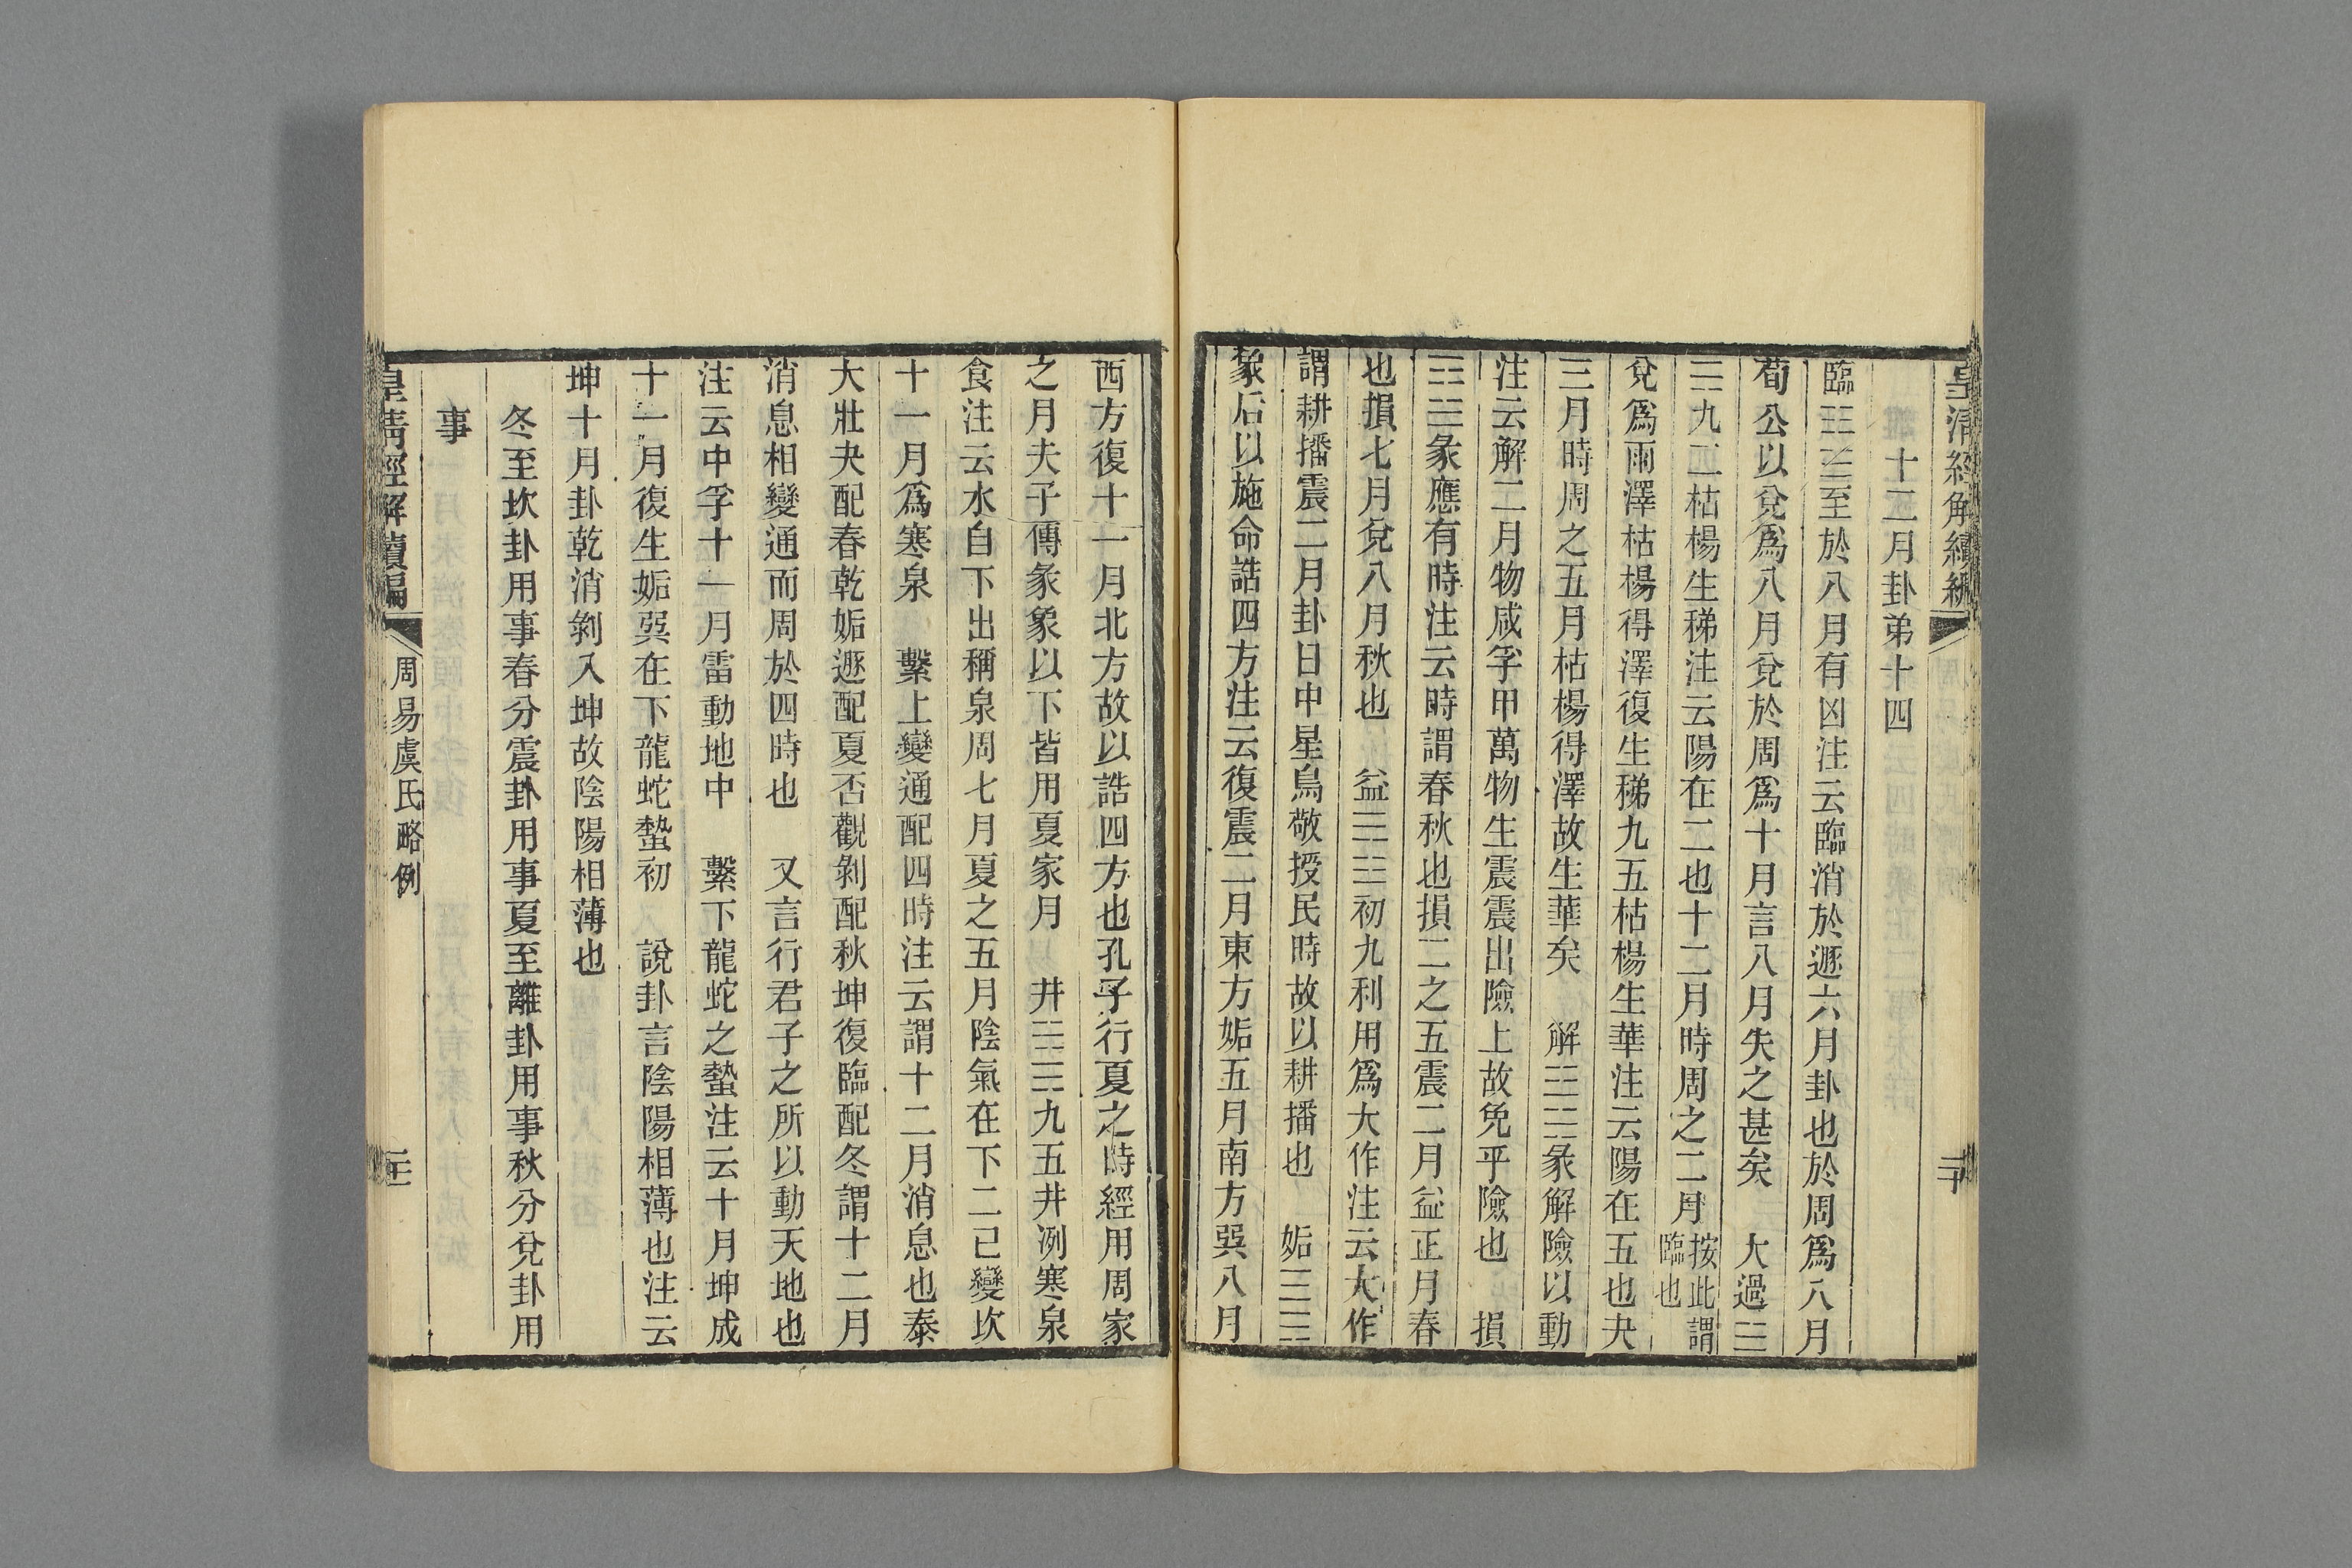 皇清經解續編
十二月卦弟十四
臨☷☱至於八月有凶注云臨消於遯六月卦也於周爲八月
荀公以兌爲八月兌於周爲十月言八月失之甚矣　大過☱
☴九二枯楊生稊注云陽在二也十二月時周之二月按此謂臨也
兌爲雨澤枯楊得澤復生稊九五枯楊生華注云陽在五也夬
三月時周之五月枯楊得澤故生華矣　解☳☵彖解險以動
注云解二月物咸孚甲萬物生震震出險上故免乎險也　損
☶☱彖應有時注云時謂春秋也損二之五震二月益正月春
也損七月兌八月秋也　益☴☳初九利用爲大作注云大作
謂耕播震二月卦日中星鳥敬授民時故以耕播也　姤☰☴
象后以施命誥四方注云復震二月東方姤五月南方巽八月
西方復十一月北方故以誥四方也孔子行夏之時經用周家
之月夫子傳彖象以下皆用夏家月　井☵☴九五井洌寒泉
食注云水自下出稱泉周七月夏之五月陰氣在下二已變坎
十一月爲寒泉　繫上變通配四時注云謂十二月消息也泰
大壯夬配春乾姤遯配夏否觀剝配秋坤復臨配冬謂十二月
消息相變通而周於四時也　又言行君子之所以動天地也
注云中孚十一月雷動地中　繫下龍蛇之蟄注云十月坤成
十一月復生姤巽在下龍蛇蟄初　說卦言陰陽相薄也注云
坤十月卦乾消剝入坤故陰陽相薄也
冬至坎卦用事春分震卦用事夏至離卦用事秋分兌卦用
事
皇清經解續編　周易虞氏略例